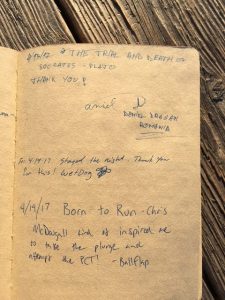 4/12/17 * THE TRIAL AND DEATH OF
SOCRATES - PLATO
THANK YOU!
DANIEL
ROMANIA
Fri 4-14-17. Stayed the night. Thank you
for this! WetDog
4/14/17 Born to Run - Chris
McDougall kind of inspired me
to take the plunge and
attempt the PCT! - Ballflap